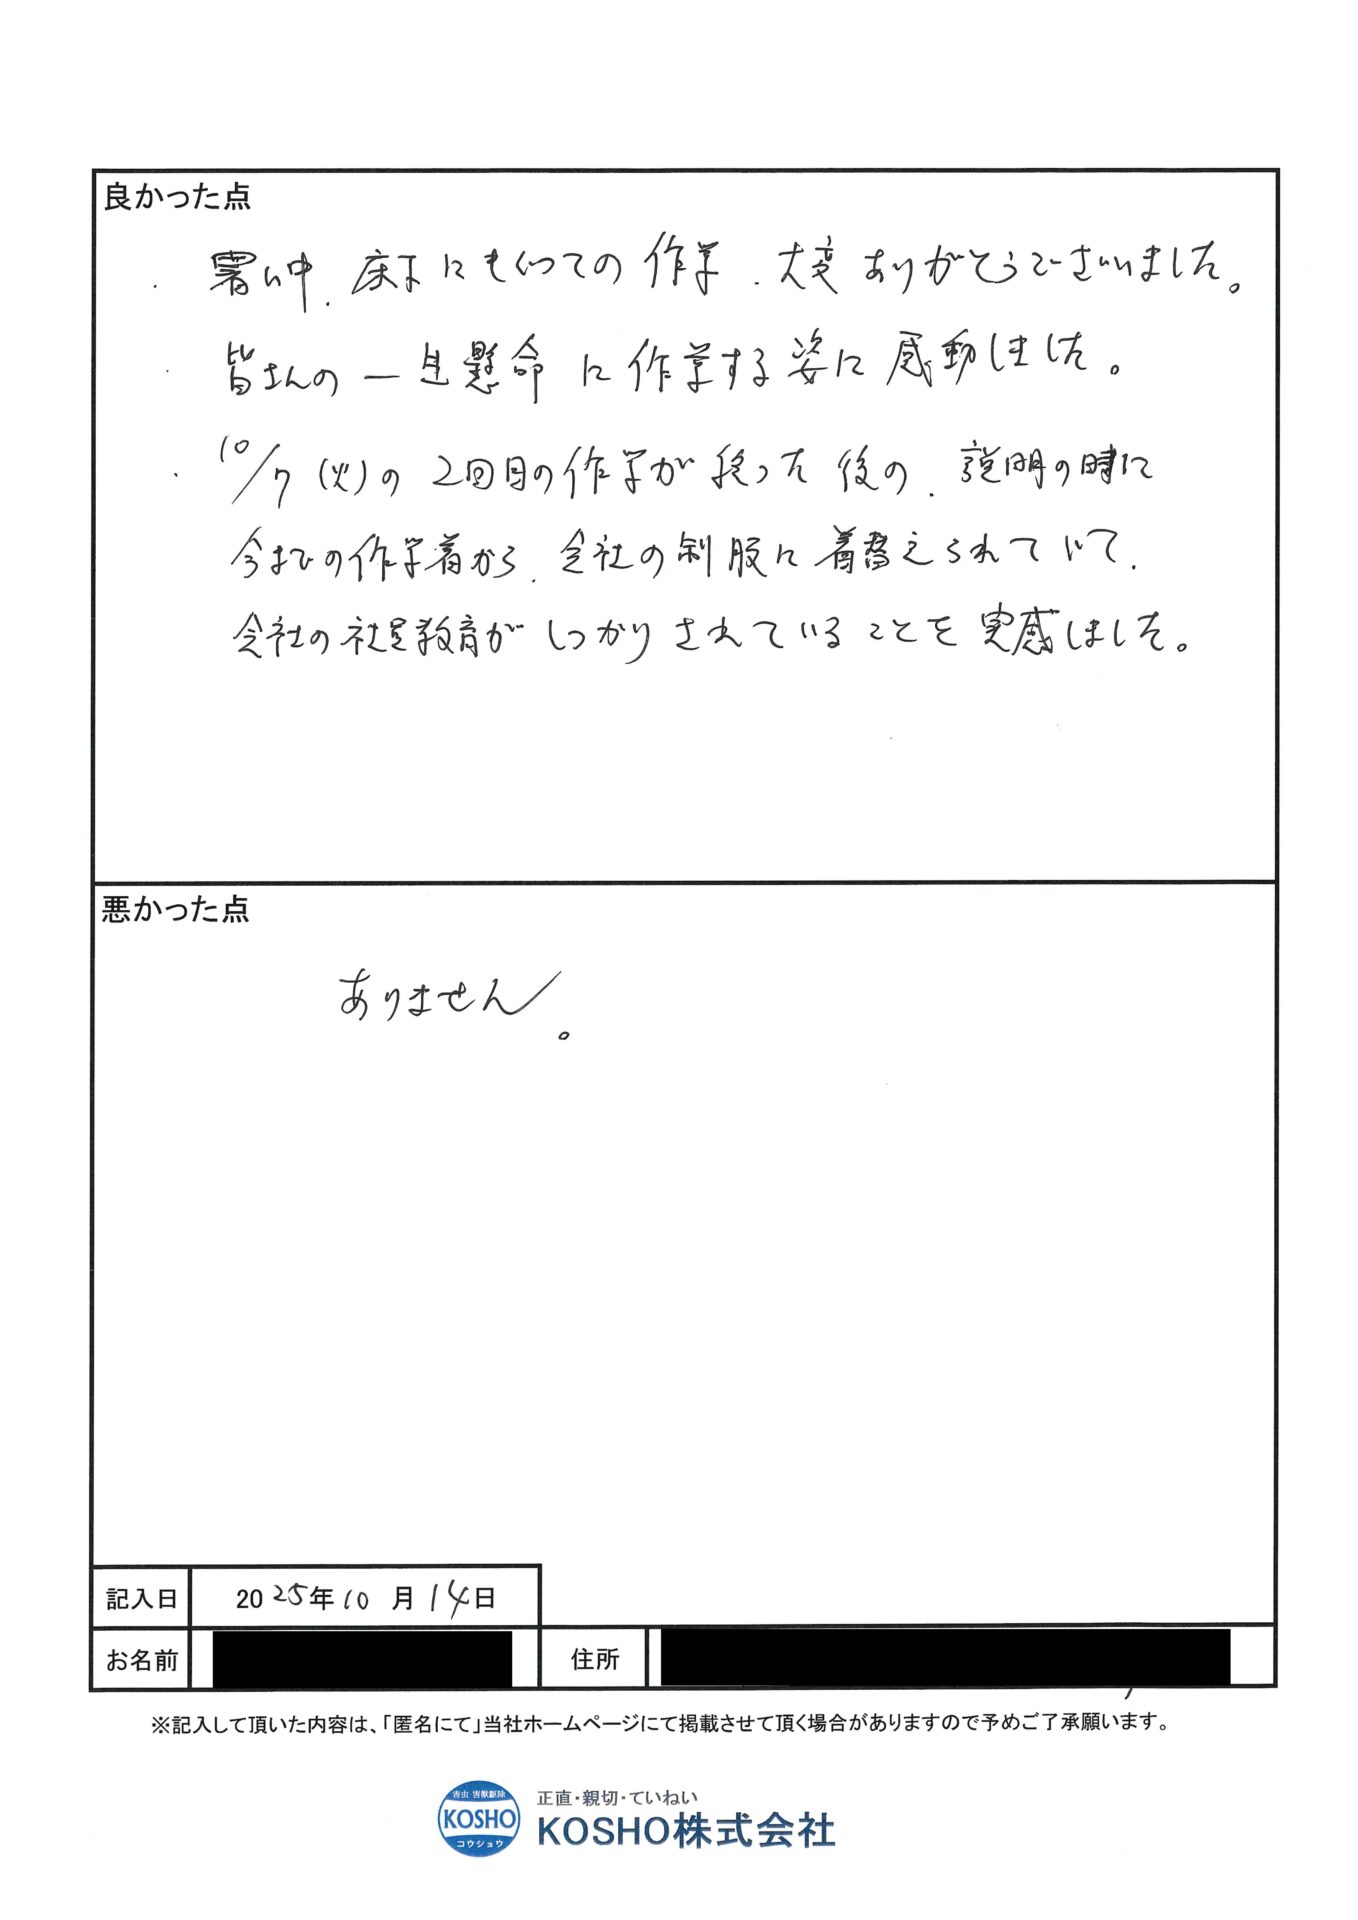 良かった点
・暑い中、床下にもぐっての作業、大変ありがとうございました。
・皆さんの一生懸命に作業する姿に感動しました。
・10/7(火)の2回目の作業が終った後の、説明の時に
今までの作業着から、会社の制服に着替えられていて、
会社の社員教育がしっかりされていることを実感しました。
悪かった点
ありません。
記入日 2025年10月14日
お名前 住所
※記入して頂いた内容は、「匿名にて」当社ホームページにて掲載させて頂く場合がありますので予めご了承願います。
害虫・害獣駆除
KOSHO
コウショウ
正直・親切・ていねい
KOSHO株式会社